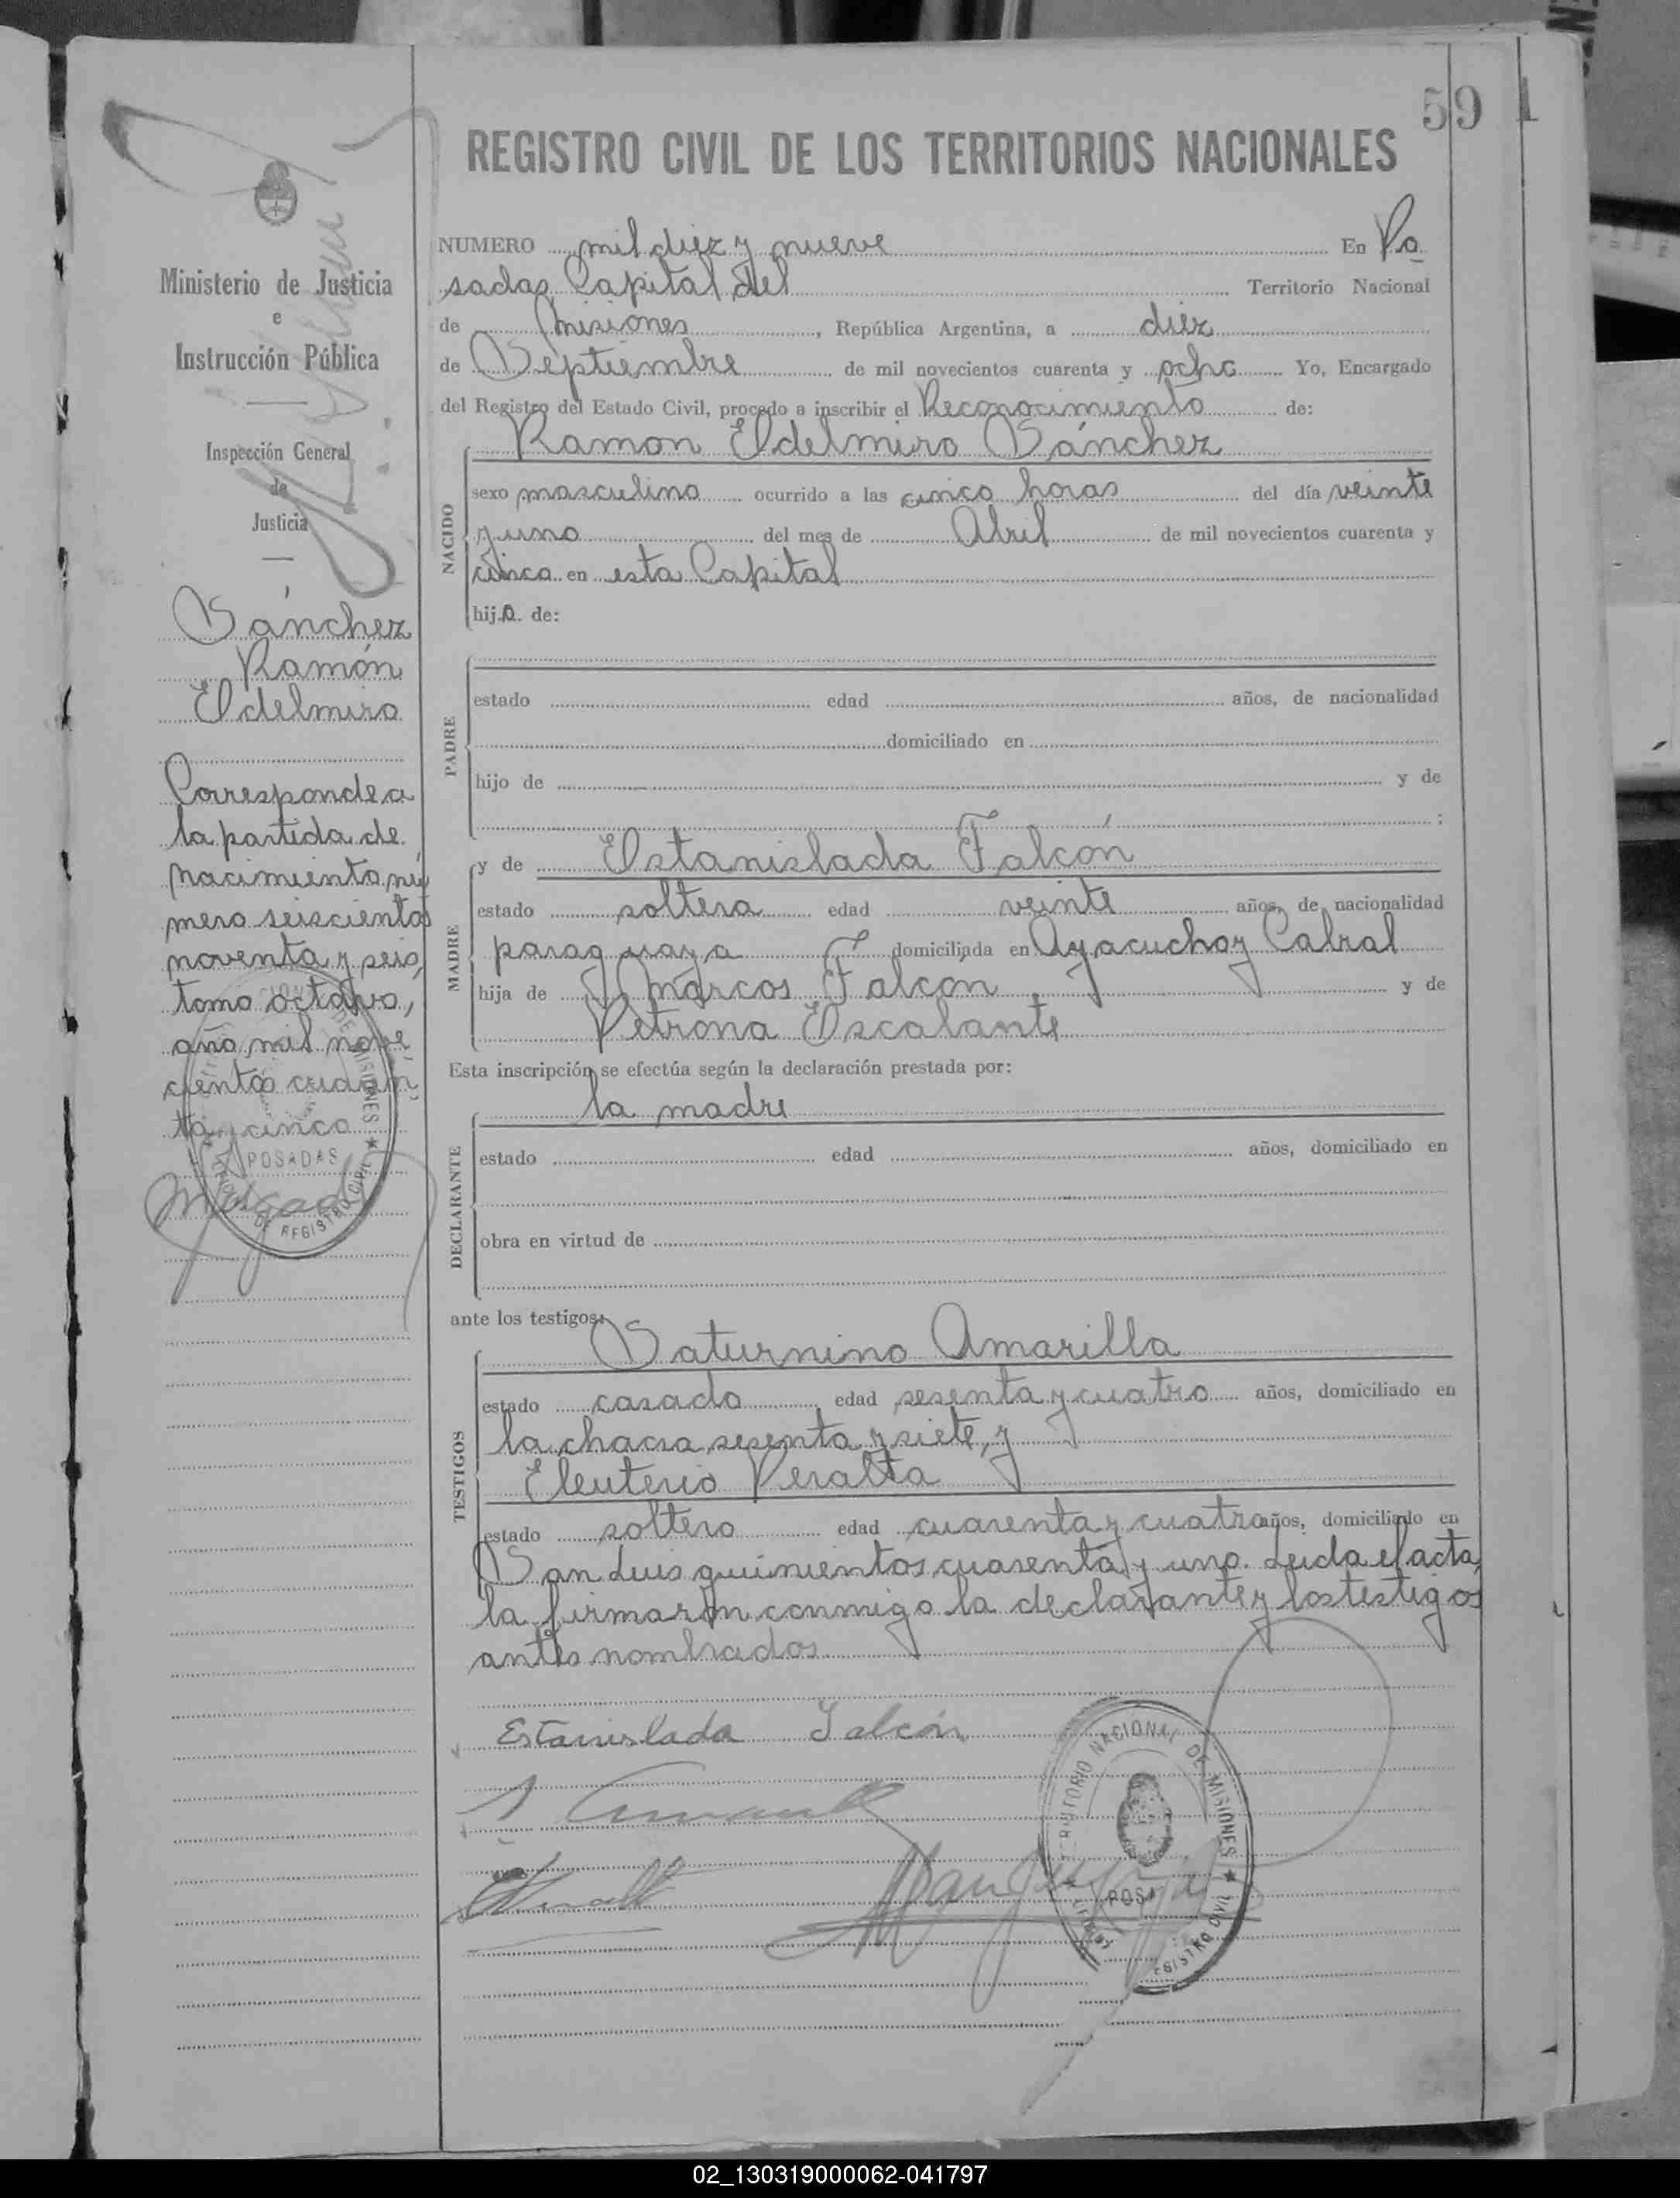 59 1
REGISTRO CIVIL DE LOS TERRITORIOS NACIONALES
Ministerio de Justicia
e
Instrucción Pública
Inspección General
de
Justicia
Sánchez
Ramón
Eldelmiro
Corresponde a
la partida de
nacimiento nú
mero seiscientos
noventa y seis,
tomo octavo,
año mil nove
cientos cuaren
ta y cinco
POSADAS
DE MISIONES ★
DE REGISTRO CIVIL
NUMERO mil diez y nueve En Po
sadas Capital del Territorio Nacional
de Misiones, República Argentina, a diez
de Septiembre de mil novecientos cuarenta y ocho Yo, Encargado
del Registro del Estado Civil, procedo a inscribir el Reconocimiento de:
Ramon Eldelmiro Sánchez
NACIDO
sexo masculino ocurrido a las cinco horas del día veinte
y uno del mes de Abril de mil novecientos cuarenta y
cinco en esta Capital
hijo de:
PADRE
estado edad años, de nacionalidad
domiciliado en
hijo de y de
;
MADRE
y de Estanislada Falcón
estado soltera edad veinte años, de nacionalidad
paraguaya domiciliada en Ayacucho y Cabral
hija de Marcos Falcón y de
Petrona Escalante
Esta inscripción se efectúa según la declaración prestada por:
la madre
DECLARANTE
estado edad años, domiciliado en
obra en virtud de
ante los testigos:
Saturnino Amarilla
TESTIGOS
estado casado edad sesenta y cuatro años, domiciliado en
la chacra sesenta y siete, y
Eleuterio Peralta
estado soltero edad cuarenta y cuatro años, domiciliado en
San Luis quinientos cuarenta y uno. Leida el acta,
la firmaron conmigo la declarante y los testigos
antes nombrados
Estanislada Falcón
TERRITORIO NACIONAL DE MISIONES ★
REGISTRO CIVIL
02_130319000062-041797